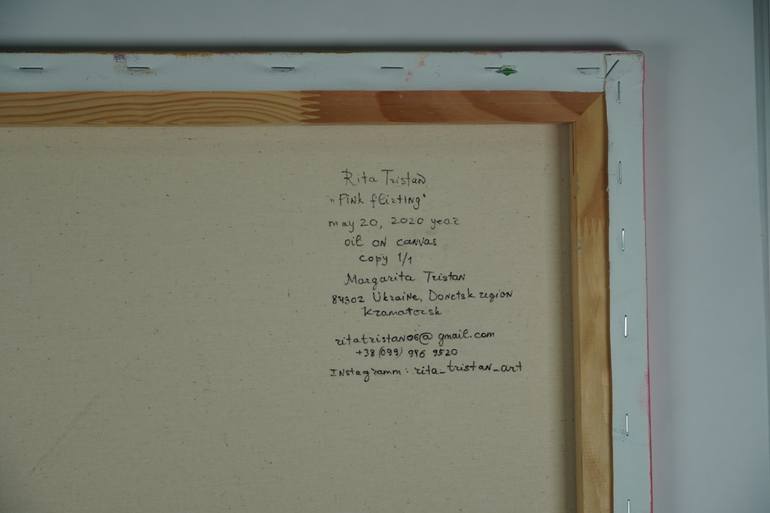 Rita Tristan
"Pink flirting"
may 20, 2020 year
oil on canvas
copy 1/1
Margarita Tristan
84302 Ukraine, Donetsk region
Kramatorsk
ritatristan06@gmail.com
+38 (099) 976 9520
Instagramm: rita_tristan_art